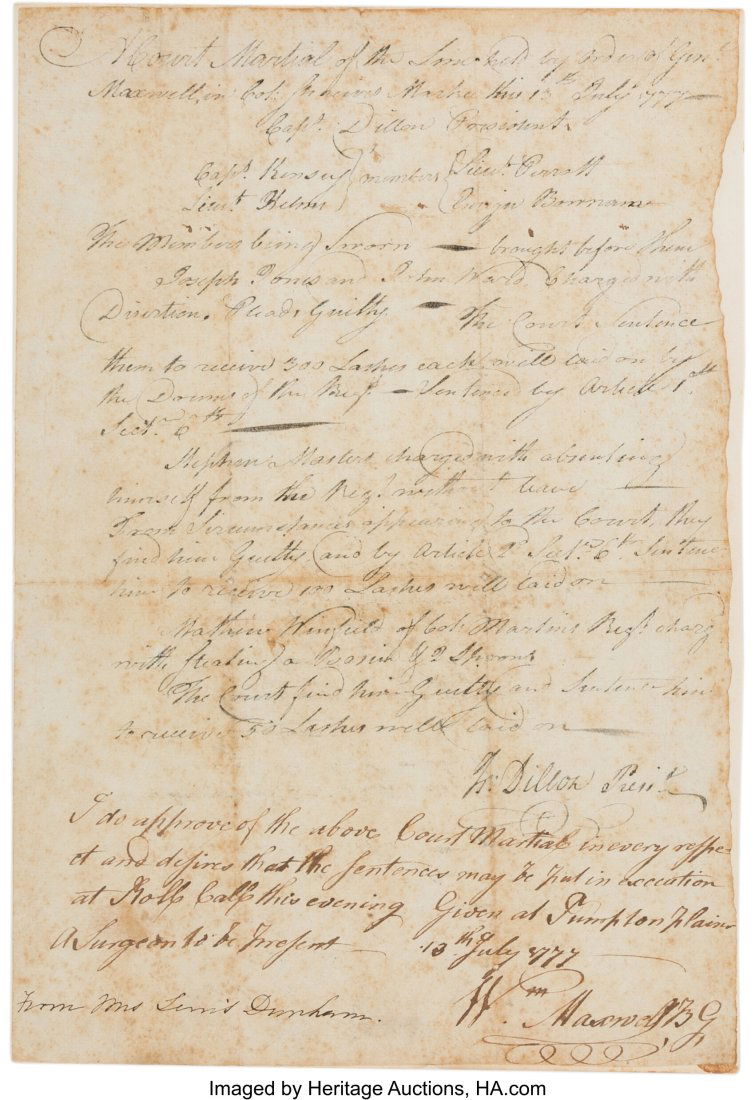 A Court Martial of the Line held by order of Genl.
Maxwell, in Col. Shreives Markee this 13th July 1777
Capt. Dillon President
Capt. Kinsey members Lieut. Perrott
Lieut. Helms Ensign Bowman
The Members being Sworn — brought before them
Joseph Jones and John Ward Charged with
Disertion. Pleads Guilty — The Court Sentence
them to receive 300 Lashes each well laid on by
the Drums of the Regt. — Sentenced by Article 1st.
Sectn. 6th
Stephen Masters charged with absenting
himself from the Regt. without leave
From Circumstances appearing to the Court, they
find him Guilty and by Article 2d Sectn. 6th Sentence
him to receive 100 Lashes well laid on
Mathew Winfield of Col. Martins Regt. charg'd
with stealing a Bason & 2 Spoons
The Court find him Guilty and Sentence him
to receive 50 Lashes well laid on
Dillon Presidt.
I do approve of the above Court Martial in every respe-
ct and desires that the Sentences may be put in execution
at Roll Call this evening Given at Pumpton plains
A Surgeon to be present 13th July 1777
Wm. Maxwell B G
From Mrs Lewis Dunham.
Imaged by Heritage Auctions, HA.com